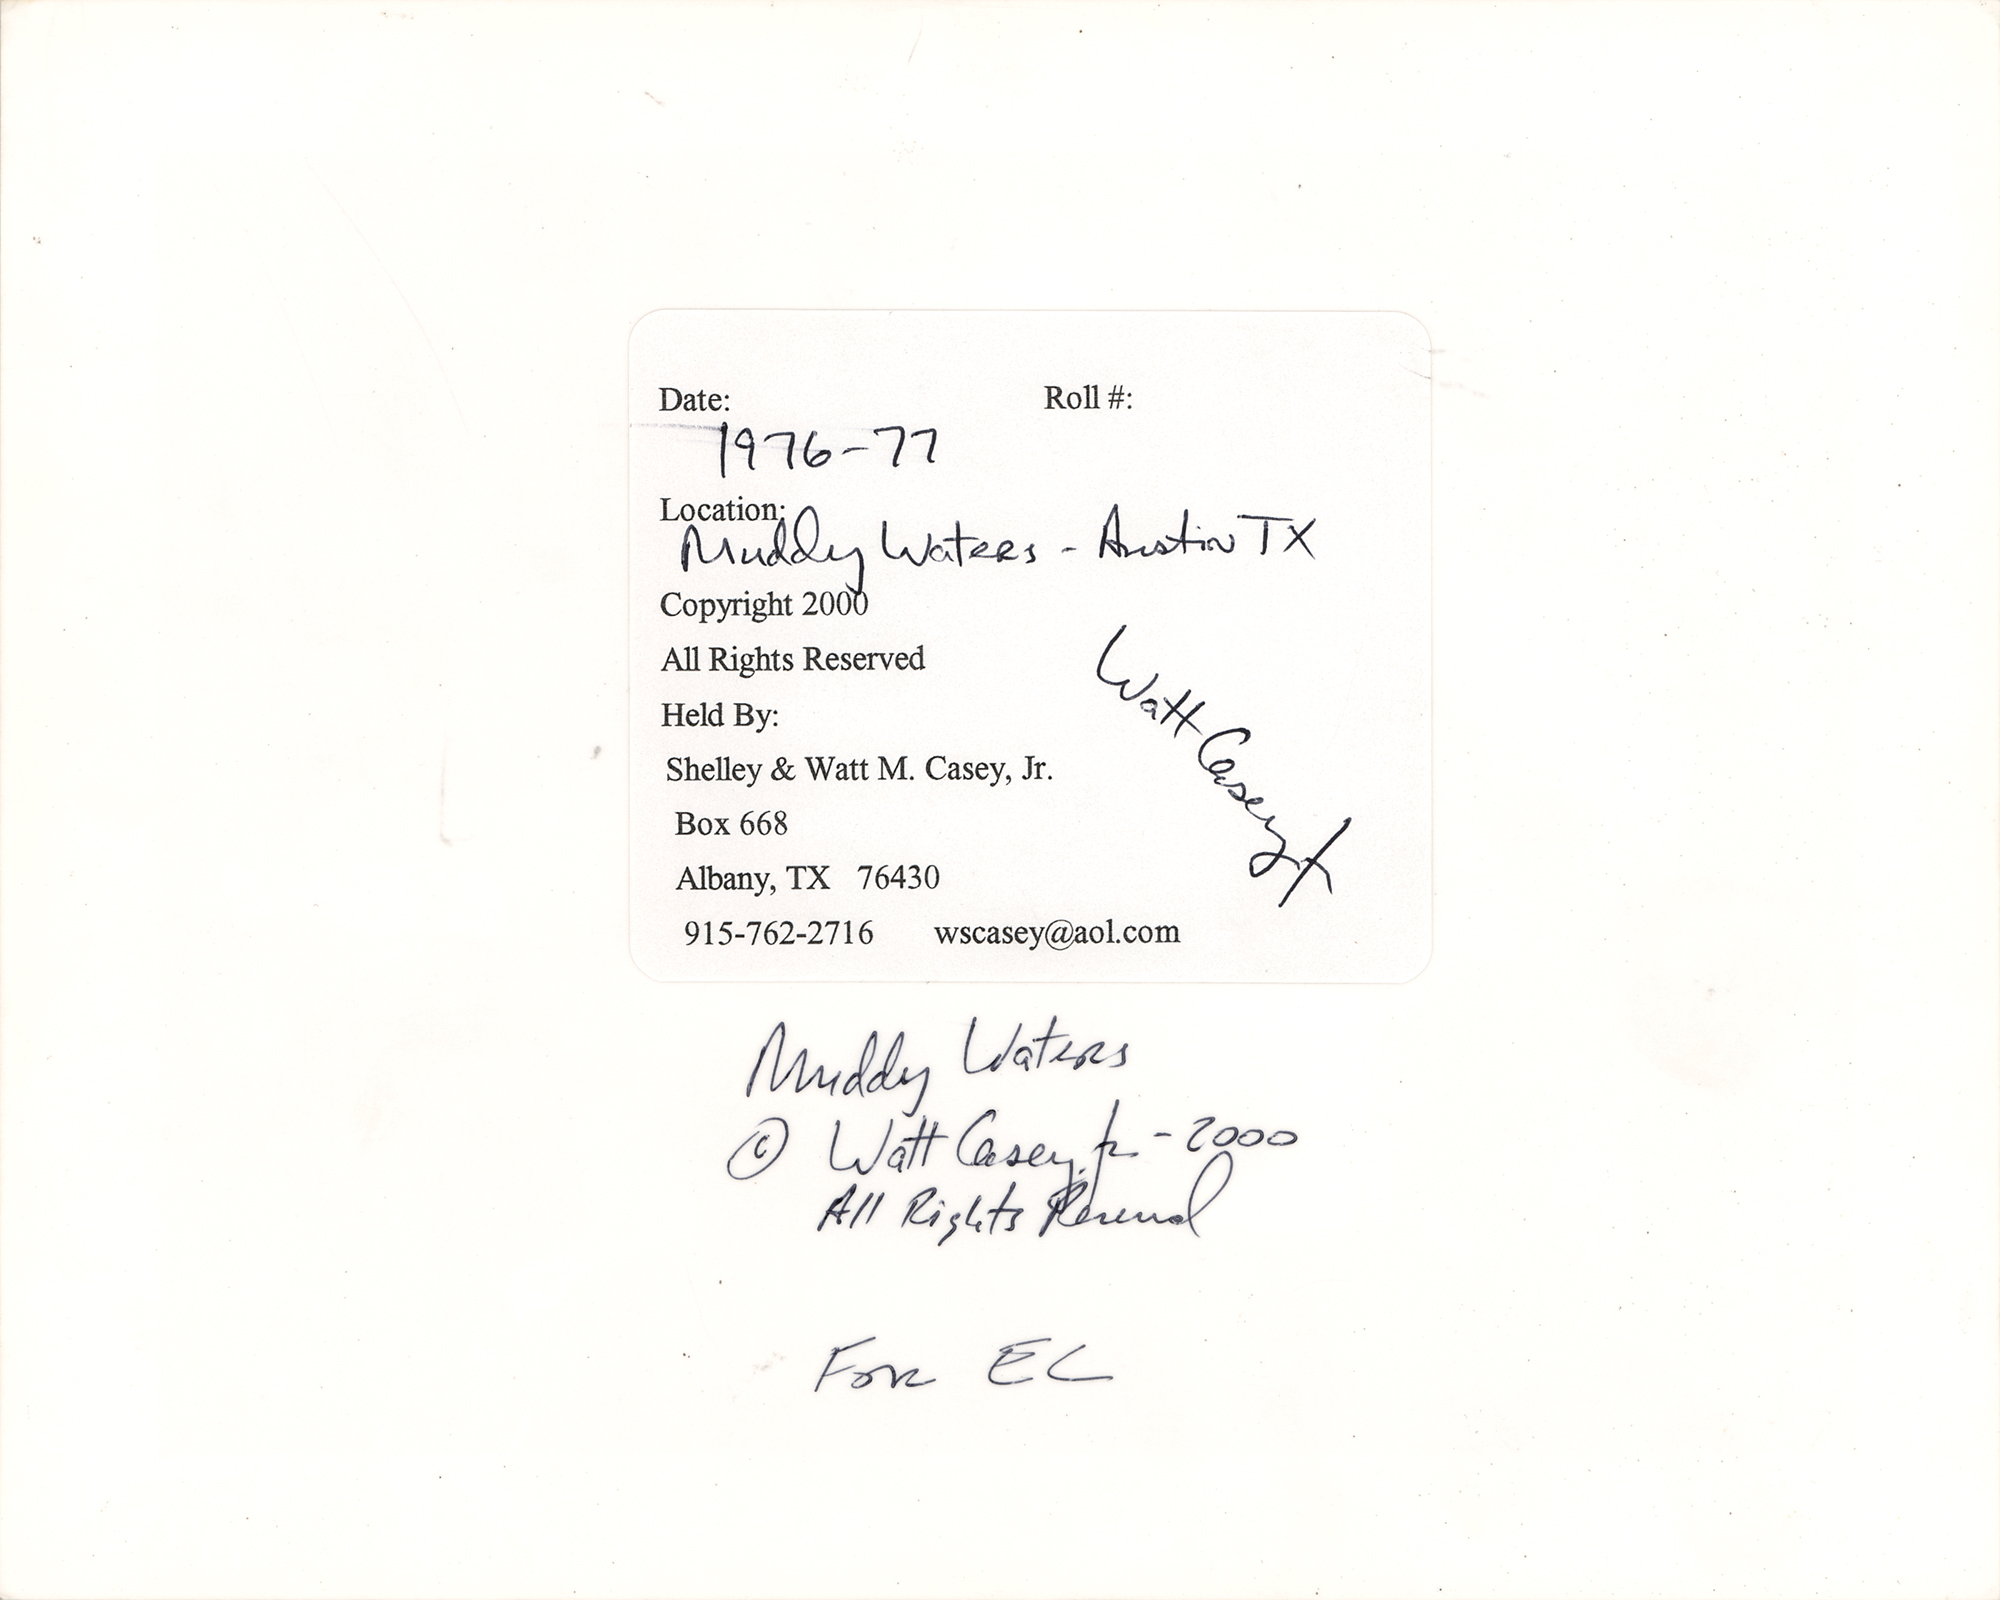 Date: Roll #:
1976-77
Location:
Muddy Waters - Austin TX
Copyright 2000
All Rights Reserved
Held By:
Shelley & Watt M. Casey, Jr.
Box 668
Albany, TX 76430
915-762-2716 wscasey@aol.com
Watt Casey Jr
Muddy Waters
© Watt Casey, Jr - 2000
All Rights Reserved
For EC